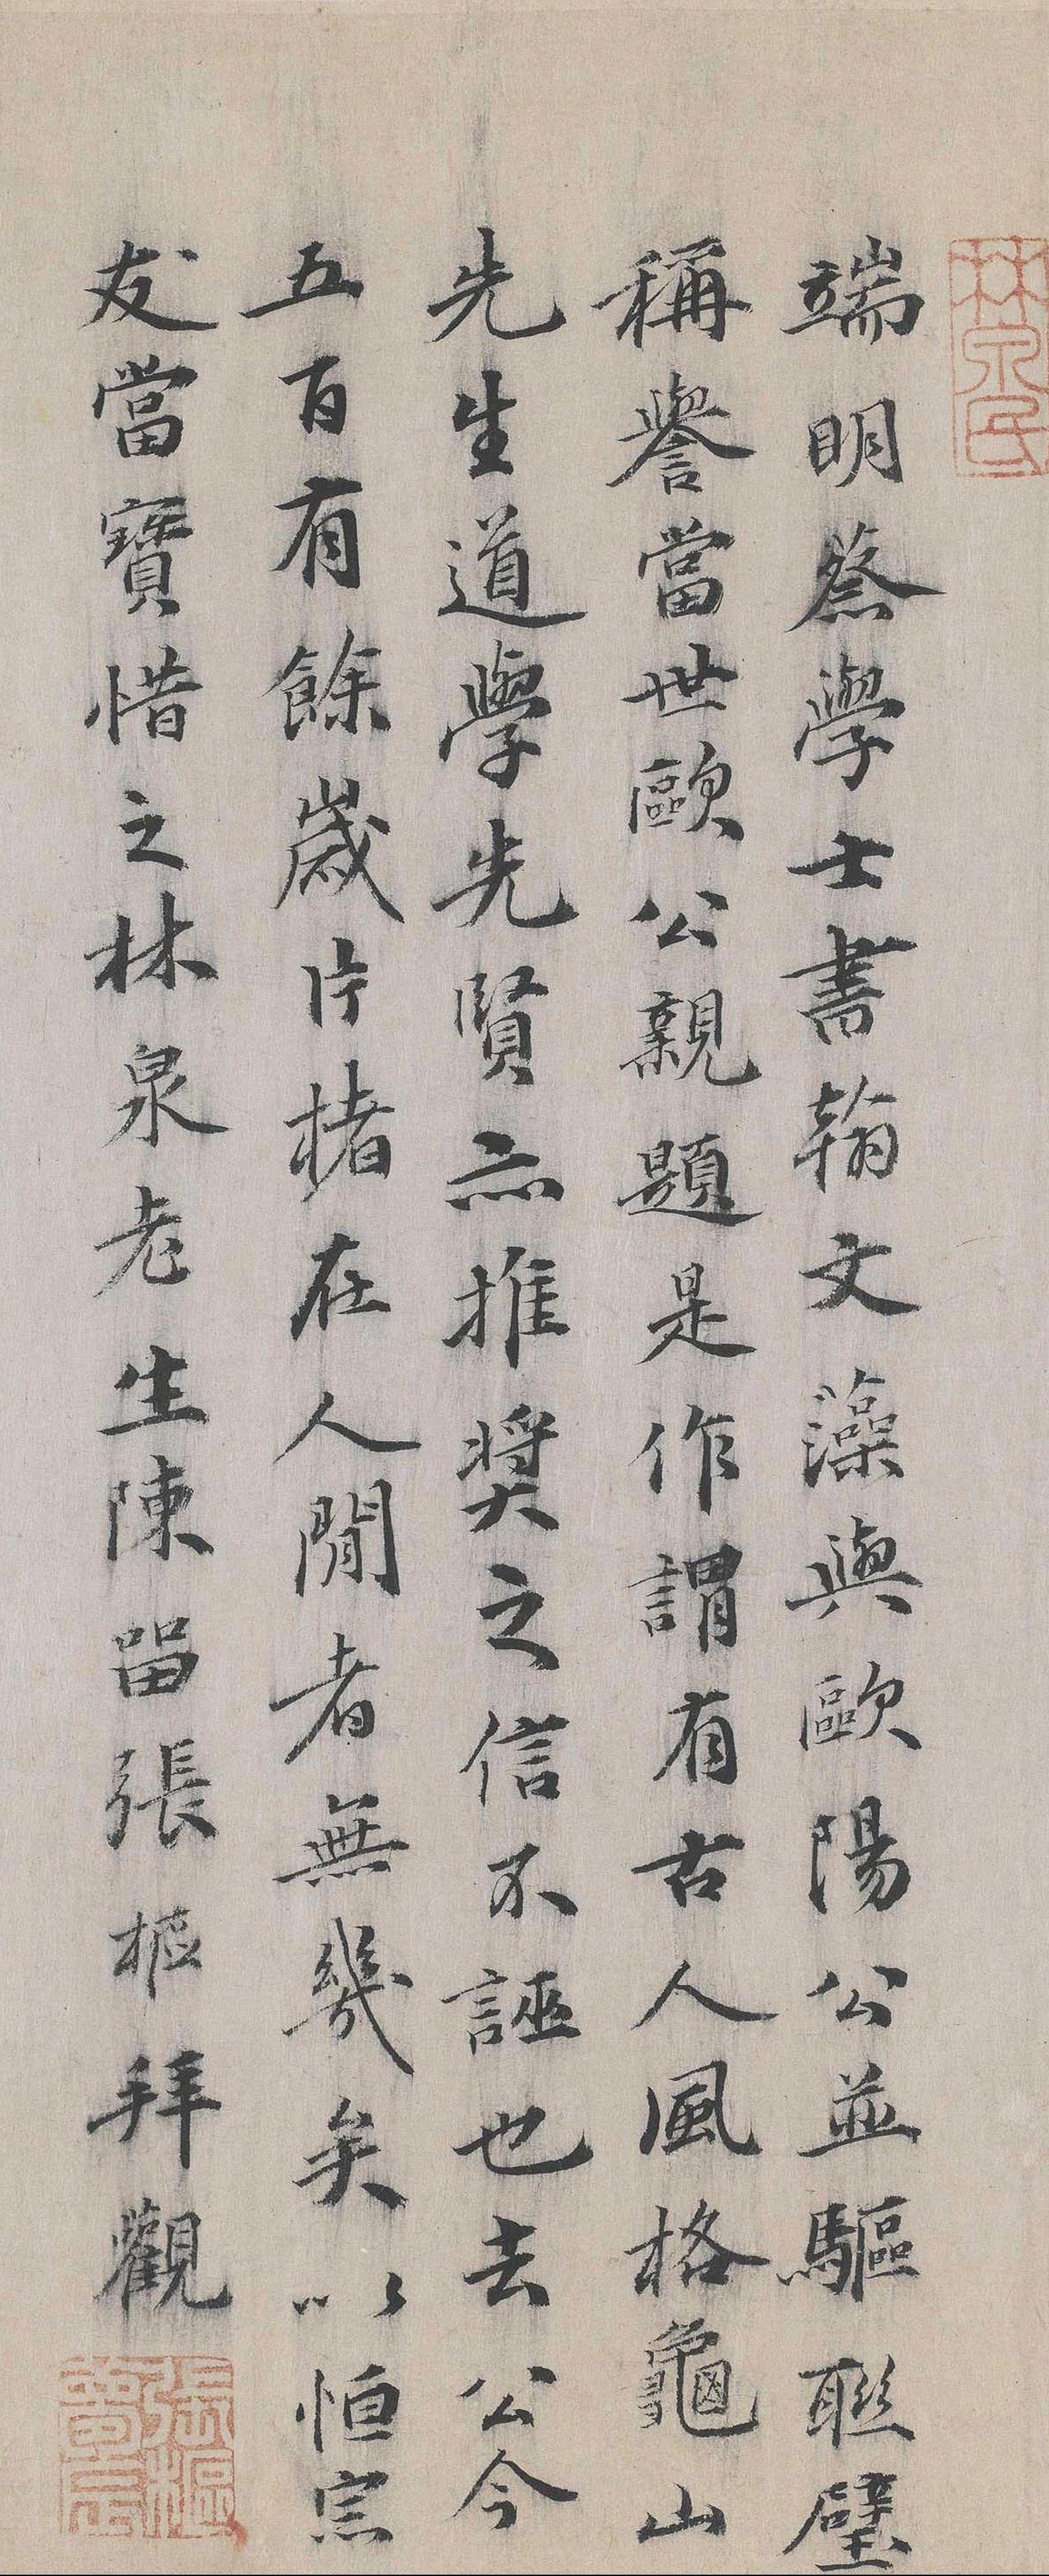 林泉民
端明蔡學士書翰文藻與歐陽公並驅聮璧
稱譽當世歐公親題是作謂有古人風格龜山
先生道學先賢亦推奬之信不誣也去公今
五百有餘歲片楮在人閒者無幾矣以恒宗
友當寶惜之林泉老生陳留張樞拜觀